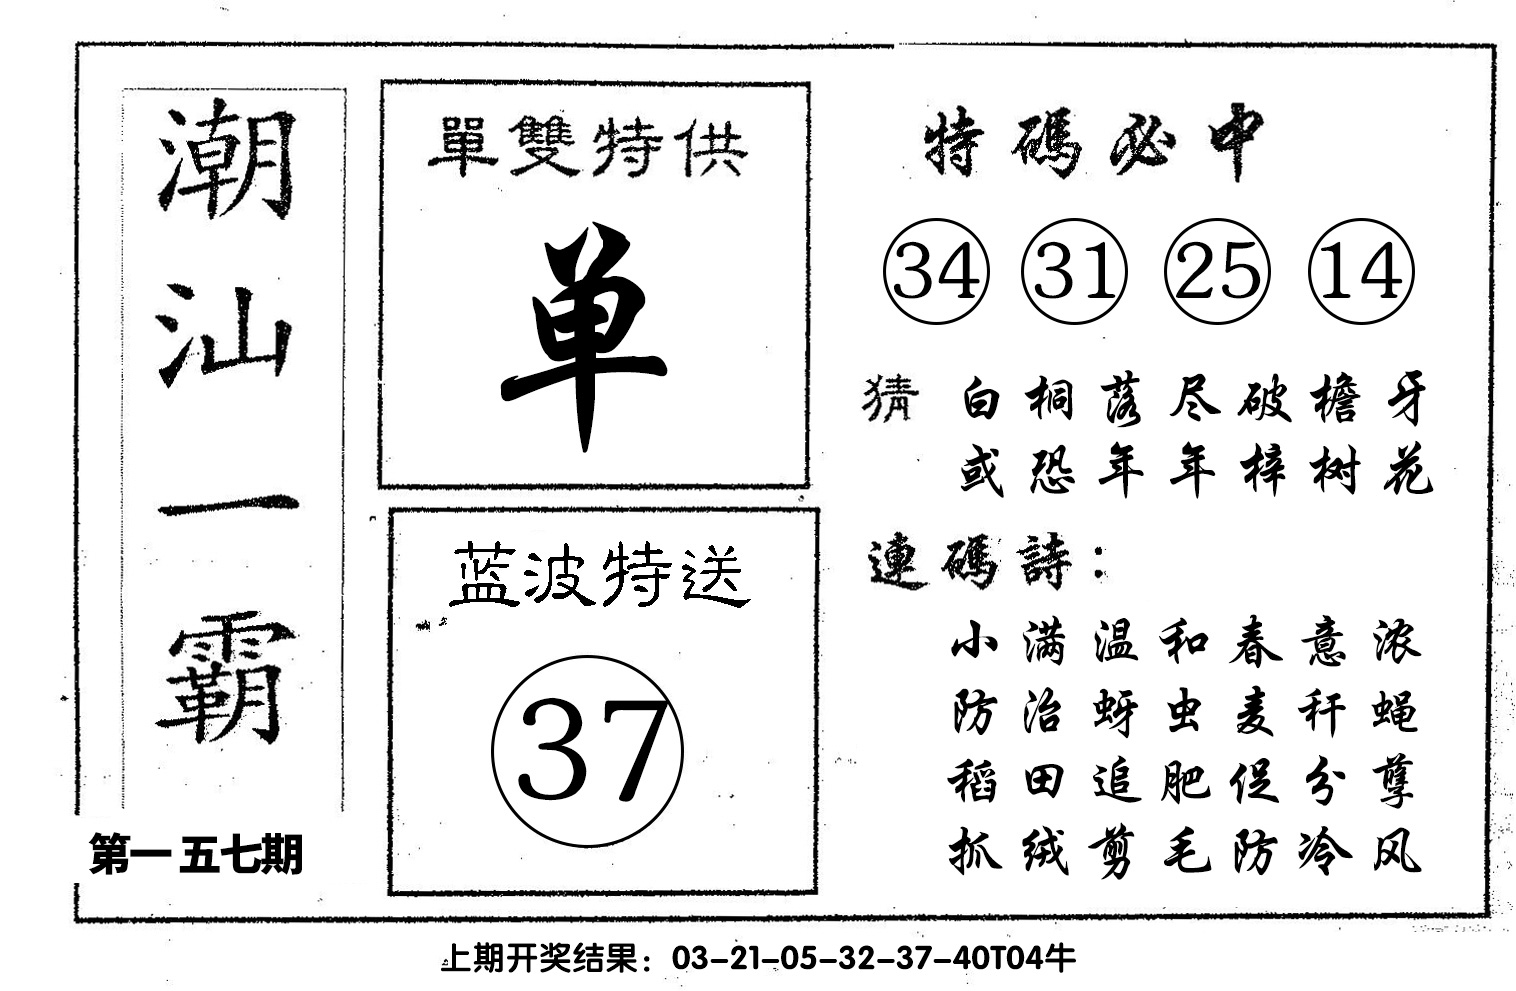 潮汕一霸
第一五七期
單雙特供
单
蓝波特送
37
特碼必中
34 31 25 14
猜 白桐落尽破檐牙
或恐年年梓树花
連碼詩：
小满温和春意浓
防治蚜虫麦秆蝇
稻田追肥促分孽
抓绒剪毛防冷风
上期开奖结果：03-21-05-32-37-40T04牛